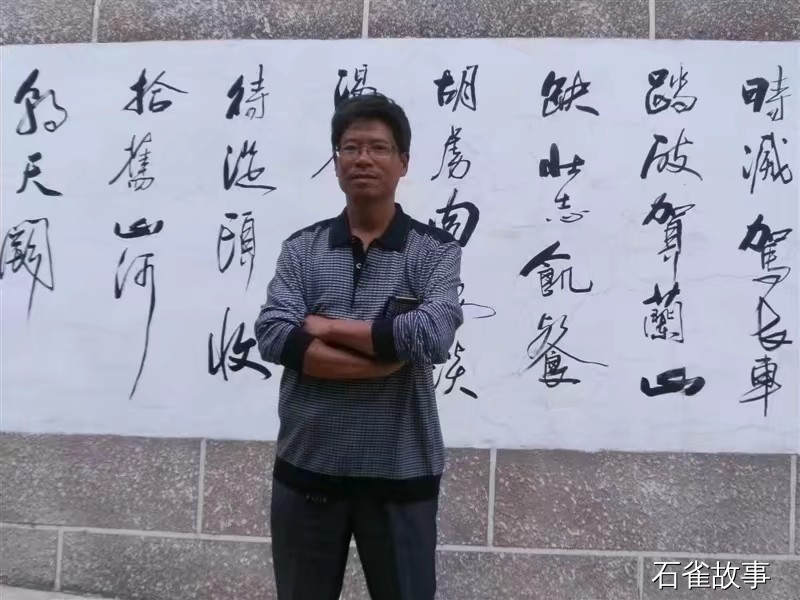 時滅駕長車
踏破賀蘭山
缺壯志飢餐
胡虜肉談
渴
待從頭收
拾舊山河
朝天闕
石雀故事